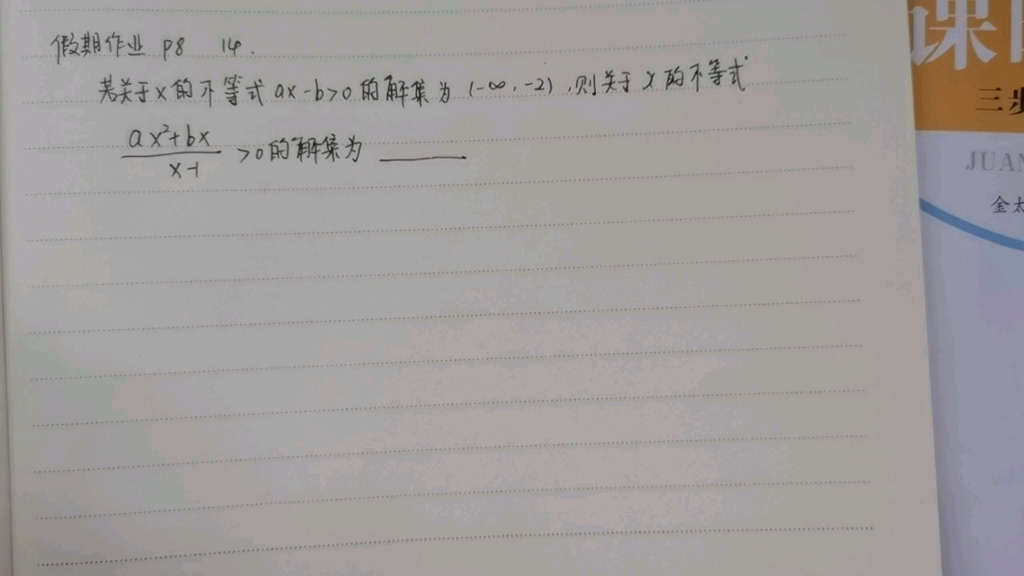 假期作业 P8 14.
若关于x的不等式ax-b>0的解集为(-∞,-2),则关于x的不等式
(ax²+bx)/(x-1) >0的解集为 ______
课
三步
JUAN
金太